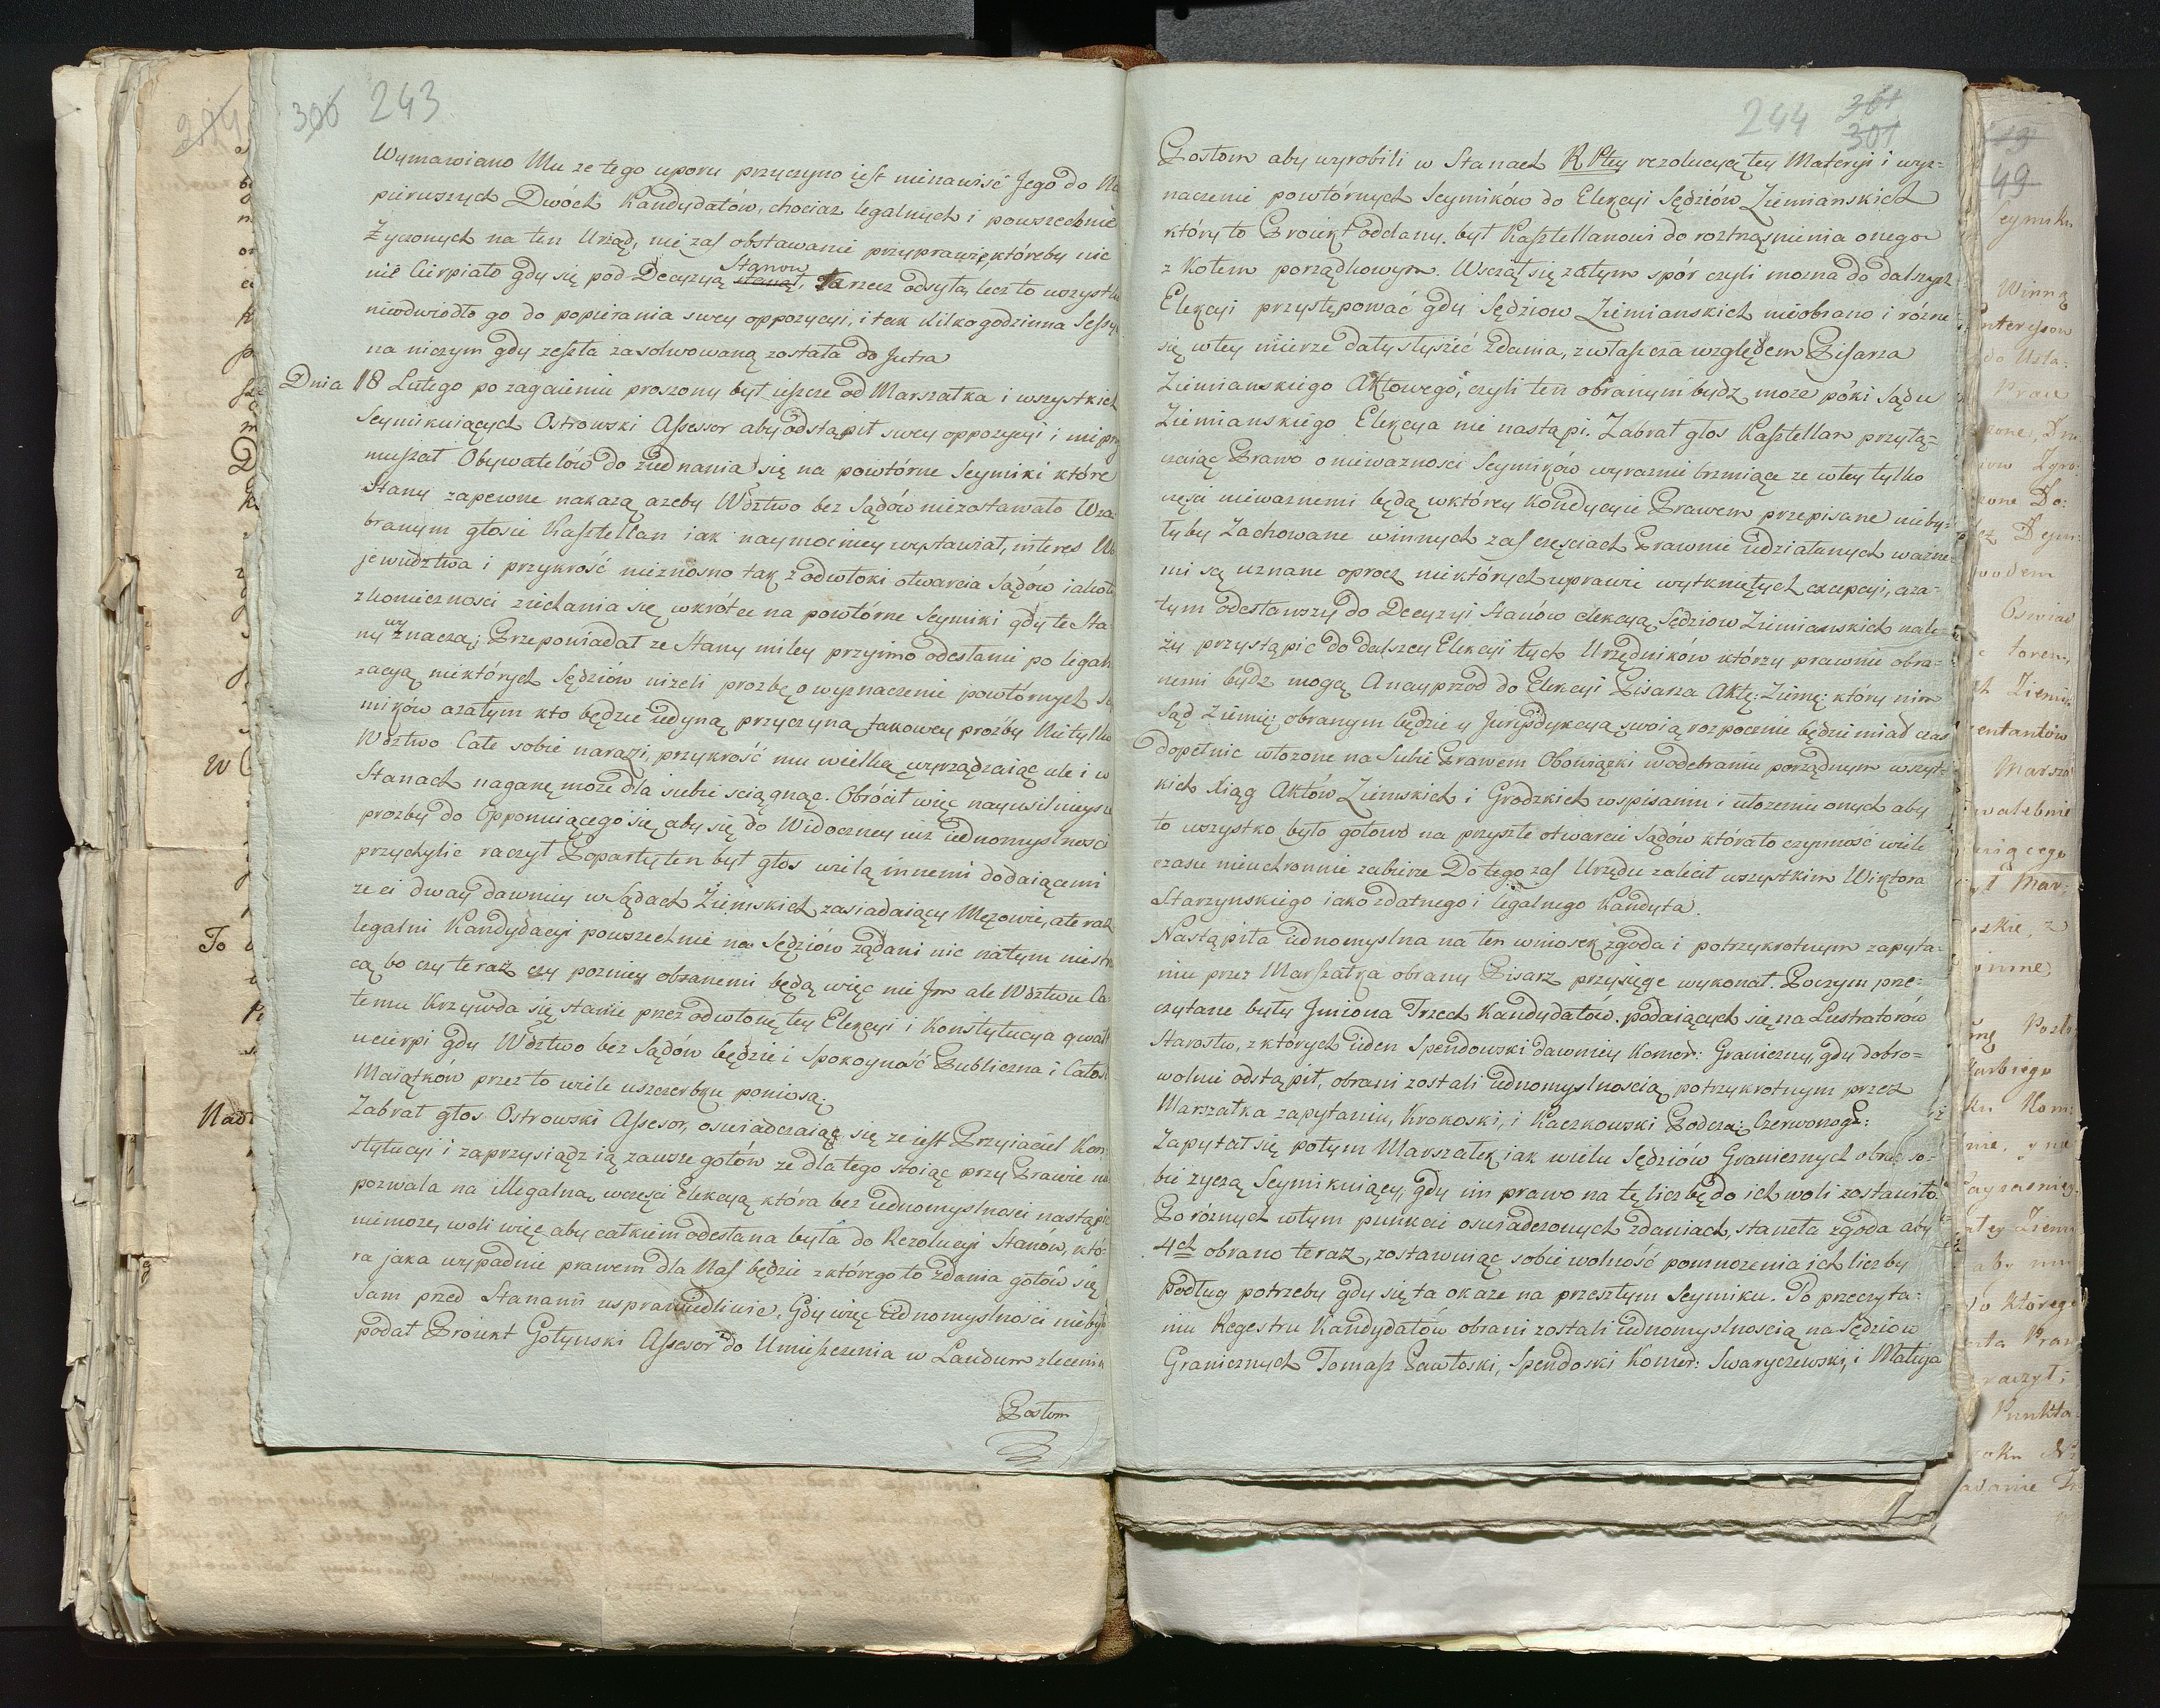 300 243
Wymawiano Mu ze tego uporu przyczyno iest nienawisć Jego do
pierwszych Dwóch Kandydatów, chociaz legalnych i powszechnie
Zyczonych na ten Urząd, nie zas obstawanie przy prawie, któreby nic
nie Cierpiało gdy się pod Decyzyą Stanow ta rzecz odsyła, lecz to wszystko
nieodwiodło go do popierania swey oppozycyi, i tak kilkogodzinna Sessya
na niczym gdy zeszła zasolwowaną została do Jutra
Dnia 18 Lutego po zagaieniu proszony był ieszcze od Marszałka i wszystkich
Seymikuiących Ostrowski Assessor aby odstąpił swey oppozycyi i nie
muszał Obywatelów do ziednania się na powtórne Seymiki które
Stany zapewne nakazą azeby Wdztwo bez Sądów niezostawało W za-
branym głosie Kasztellan iak naymocniey wystawiał, interes
jewodztwa i przykrość nieznosno tak z odwłoki otwarcia Sądów iako
z koniecznosci ziechania się wkrótce na powtórne Seymiki gdy te Sta-
ny wyznaczą; Przepowiadał ze Stany miley przyimo odesłanie po legali
zacyą niektórych Sędziów nizeli prozbę o wyznaczenie powtórnych
mików azatym kto będzie iedyną przyczyną takowey prozby Nietylko
Wdztwo Całe sobie narazi, przykrość mu wielką wyrządzaiąc ale i w
Stanach naganę moze dla siebie sciągnąc. Obrócił więc nayusilnieysze
prozby do Opponuiącego się aby się do Widoczney iuz iednomyslnosci
przychylic raczył Poparty ten był głos wielą innemi dodaiącemi
ze ci dway dawniey w Sądach Ziemskich zasiadaiący Męzowie, ale
legalni Kandydaci powszechnie na Sędziów ządani nic natym
cą bo czy teraz czy pozniey obranemi będą więc nie Im ale Wdztwu Ca-
łemu Krzywda się stanie przez odwłonę tey Elekcyi i Konstytucya gwałt
ucierpi gdy Wdztwo bez Sądów będzie i Spokoyność Publiczna i Całość
Maiątków przez to wiele uszczerbku poniosą;
Zabrał głos Ostrowski Assesor, oswiadczaiąc się ze iest Przyiaciel Kon-
stytucyi i zaprzysiądz ią zawsze gotów ze dla tego stoiąc przy Prawie nie
pozwala na illegalną wczęsci Elekcyą która bez iednomyslnosci nastąpić
niemoze, woli więc aby całkiem odesłana była do Rezolucyi Stanów, któ-
ra jaka wypadnie prawem dla Nas będzie z którego to zdania gotów się
Sam przed Stanami usprawiedliwic. Gdy więc iednomyslnosci niebyło
podał Proiekt Gołyński Assesor do Umieszczenia w Laudum zlecenia
Posłom
244 301
Posłom aby wyrobili w Stanach R Pltey rezolucyą tey Materyi i wyz-
naczenie powtórnych Seymików do Elekcyi Sędziów Ziemianskich
który to Proiekt oddany był Kasztellanowi do roztrząsnienia onego
z Kołem porządkowym. Wsczął się zatym spór czyli mozna do dalszych
Elekcyi przystępować gdy Sędziow Ziemianskich nieobrano i rózne
się wtey mierze dały słyszéć zdania, zwłaszcza względem Pisarza
Ziemianskiego Aktowego, czyli ten obranym bydz moze póki Sądu
Ziemianskiego Elekcya nie nastąpi. Zabrał głos Kasztellan przyłą-
czaiąc Prawo o niewaznosci Seymików wyraznie brzmiące ze wtey tylko
części niewaznemi będą wktórey Kondycyie Prawem przepisane nieby-
łyby Zachowane winnych zas częsciach Prawnie udziałanych wazne-
mi są uznane oprocz niektórych wprawie wytknętych excepcyi, aza-
tym odesławszy do Decyzyi Stanów elekcyą Sędziow Ziemianskich nale-
ży przystąpic do dalszey Elekcyi tych Urzędników którzy prawnie obra-
nemi bydz mogą Anayprzod do Elekcyi Pisarza Aktę: Ziemę: który nim
Sąd Ziemię: obranym będzie y Juryzdykcyą swoią rozpocznie będzie miał czas
dopełnic włozone na Siebie Prawem Obowiązki wodebraniu porządnym wszyst-
kich Xiąg Aktów Ziemskich i Grodzkich wspisaniu i ułozeniu onych aby
to wszystko było gotowo na przyszłe otwarcie Sądów która to czynność wiele
czasu nieuchronnie zabierze Do tego zas Urzędu zalecił wszystkim Wiktora
Starzynskiego iako zdatnego i legalnego Kandyta.
Nastąpiła iednomyslna na ten wniosek zgoda i potrzykrotnym zapyta-
niu przez Marszałka obrany Pisarz przysięge wykonał. Poczym prze-
czytane były Jmiona Trzech Kandydatów podaiących się na Lustratorów
Starostw, z których ieden Spendowski dawniey Komor: Graniczny, gdy dobro=
wolnie odstąpił, obrani zostali iednomyslnoscią potrzykrotnym przez
Marszałka zapytaniu, Krokoski, i Kaczkowski Podcza: Czerwonogr:
Zapytał się potym Marszałek iak wielu Sędziów Granicznych obrac so-
bie zyczą Seymikuiący, gdy im prawo na tę liczbę do ich woli zostawiło.
Po róznych wtym punkcie oswiadczonych zdaniach, staneła zgoda aby
4ch obrano teraz, zostawuiąc sobie wolność pomnozenia ich liczby
Podług potrzeby gdy się ta okaze na przeszłym Seymiku. Po przeczyta-
niu Regestru Kandydatów obrani zostali iednomyslnoscią na Sędziow
Granicznych Tomasz Pawłoski, Spendoski Komor: Swaryczewski, i Matyja
49